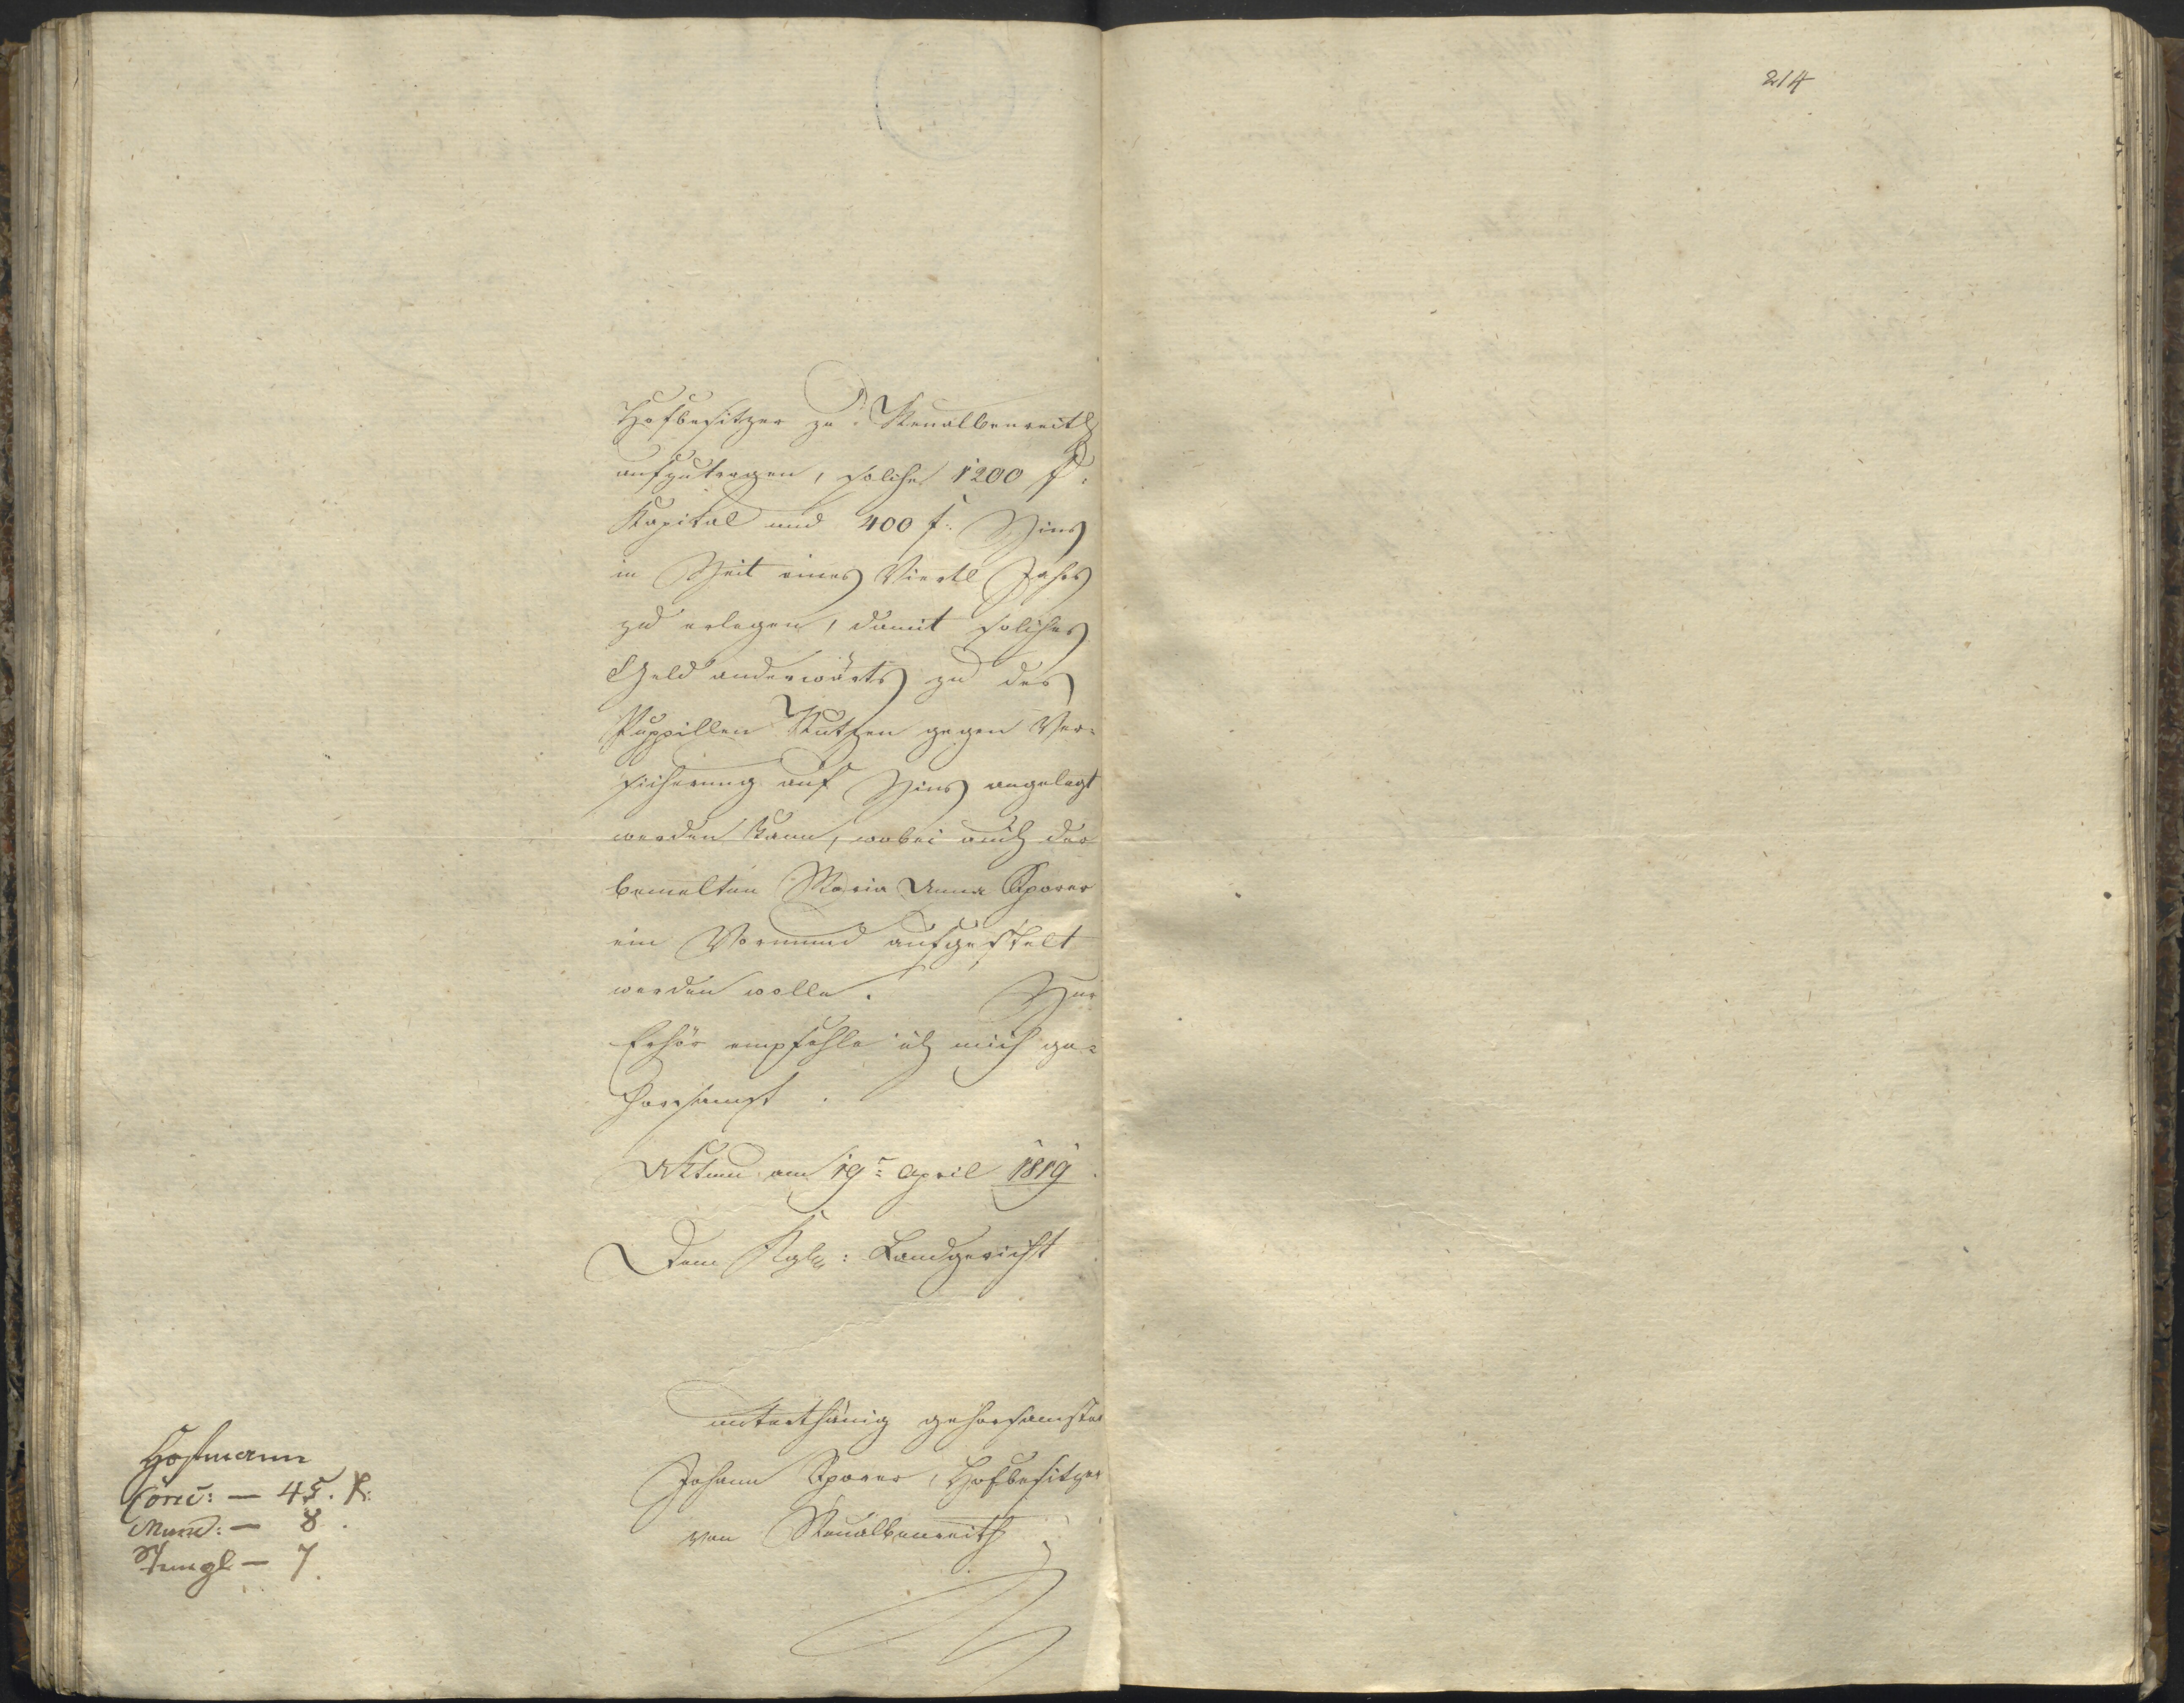 214
Hofbesitzer zu Neualbenreith
aufzutragen, solche 1200 f:
Kapital und 400 f: Zins
in Zeit eines Viertl Jahrs
zu erlegen, damit solches
Geld anderwärts zu des
Puppillen Nutzen gegen Ver=
sicherung auf Zins angelegt
werden kann, wobei auch der
bemelten Maria Anna Sporer
ein Vormund aufgestelt
werden wolle. Zur
Erhör empfehle ich mich ge=
horsamst.
Aktum am 19= April 1819.
Dem Kgl: Landgericht
unterthänig gehorsamster
Johann Sporer, Hofbesitzer
von Neualbenreith
Hofmann
Conc: — 45. k:
Mund: — 8.
Stempl — 7.